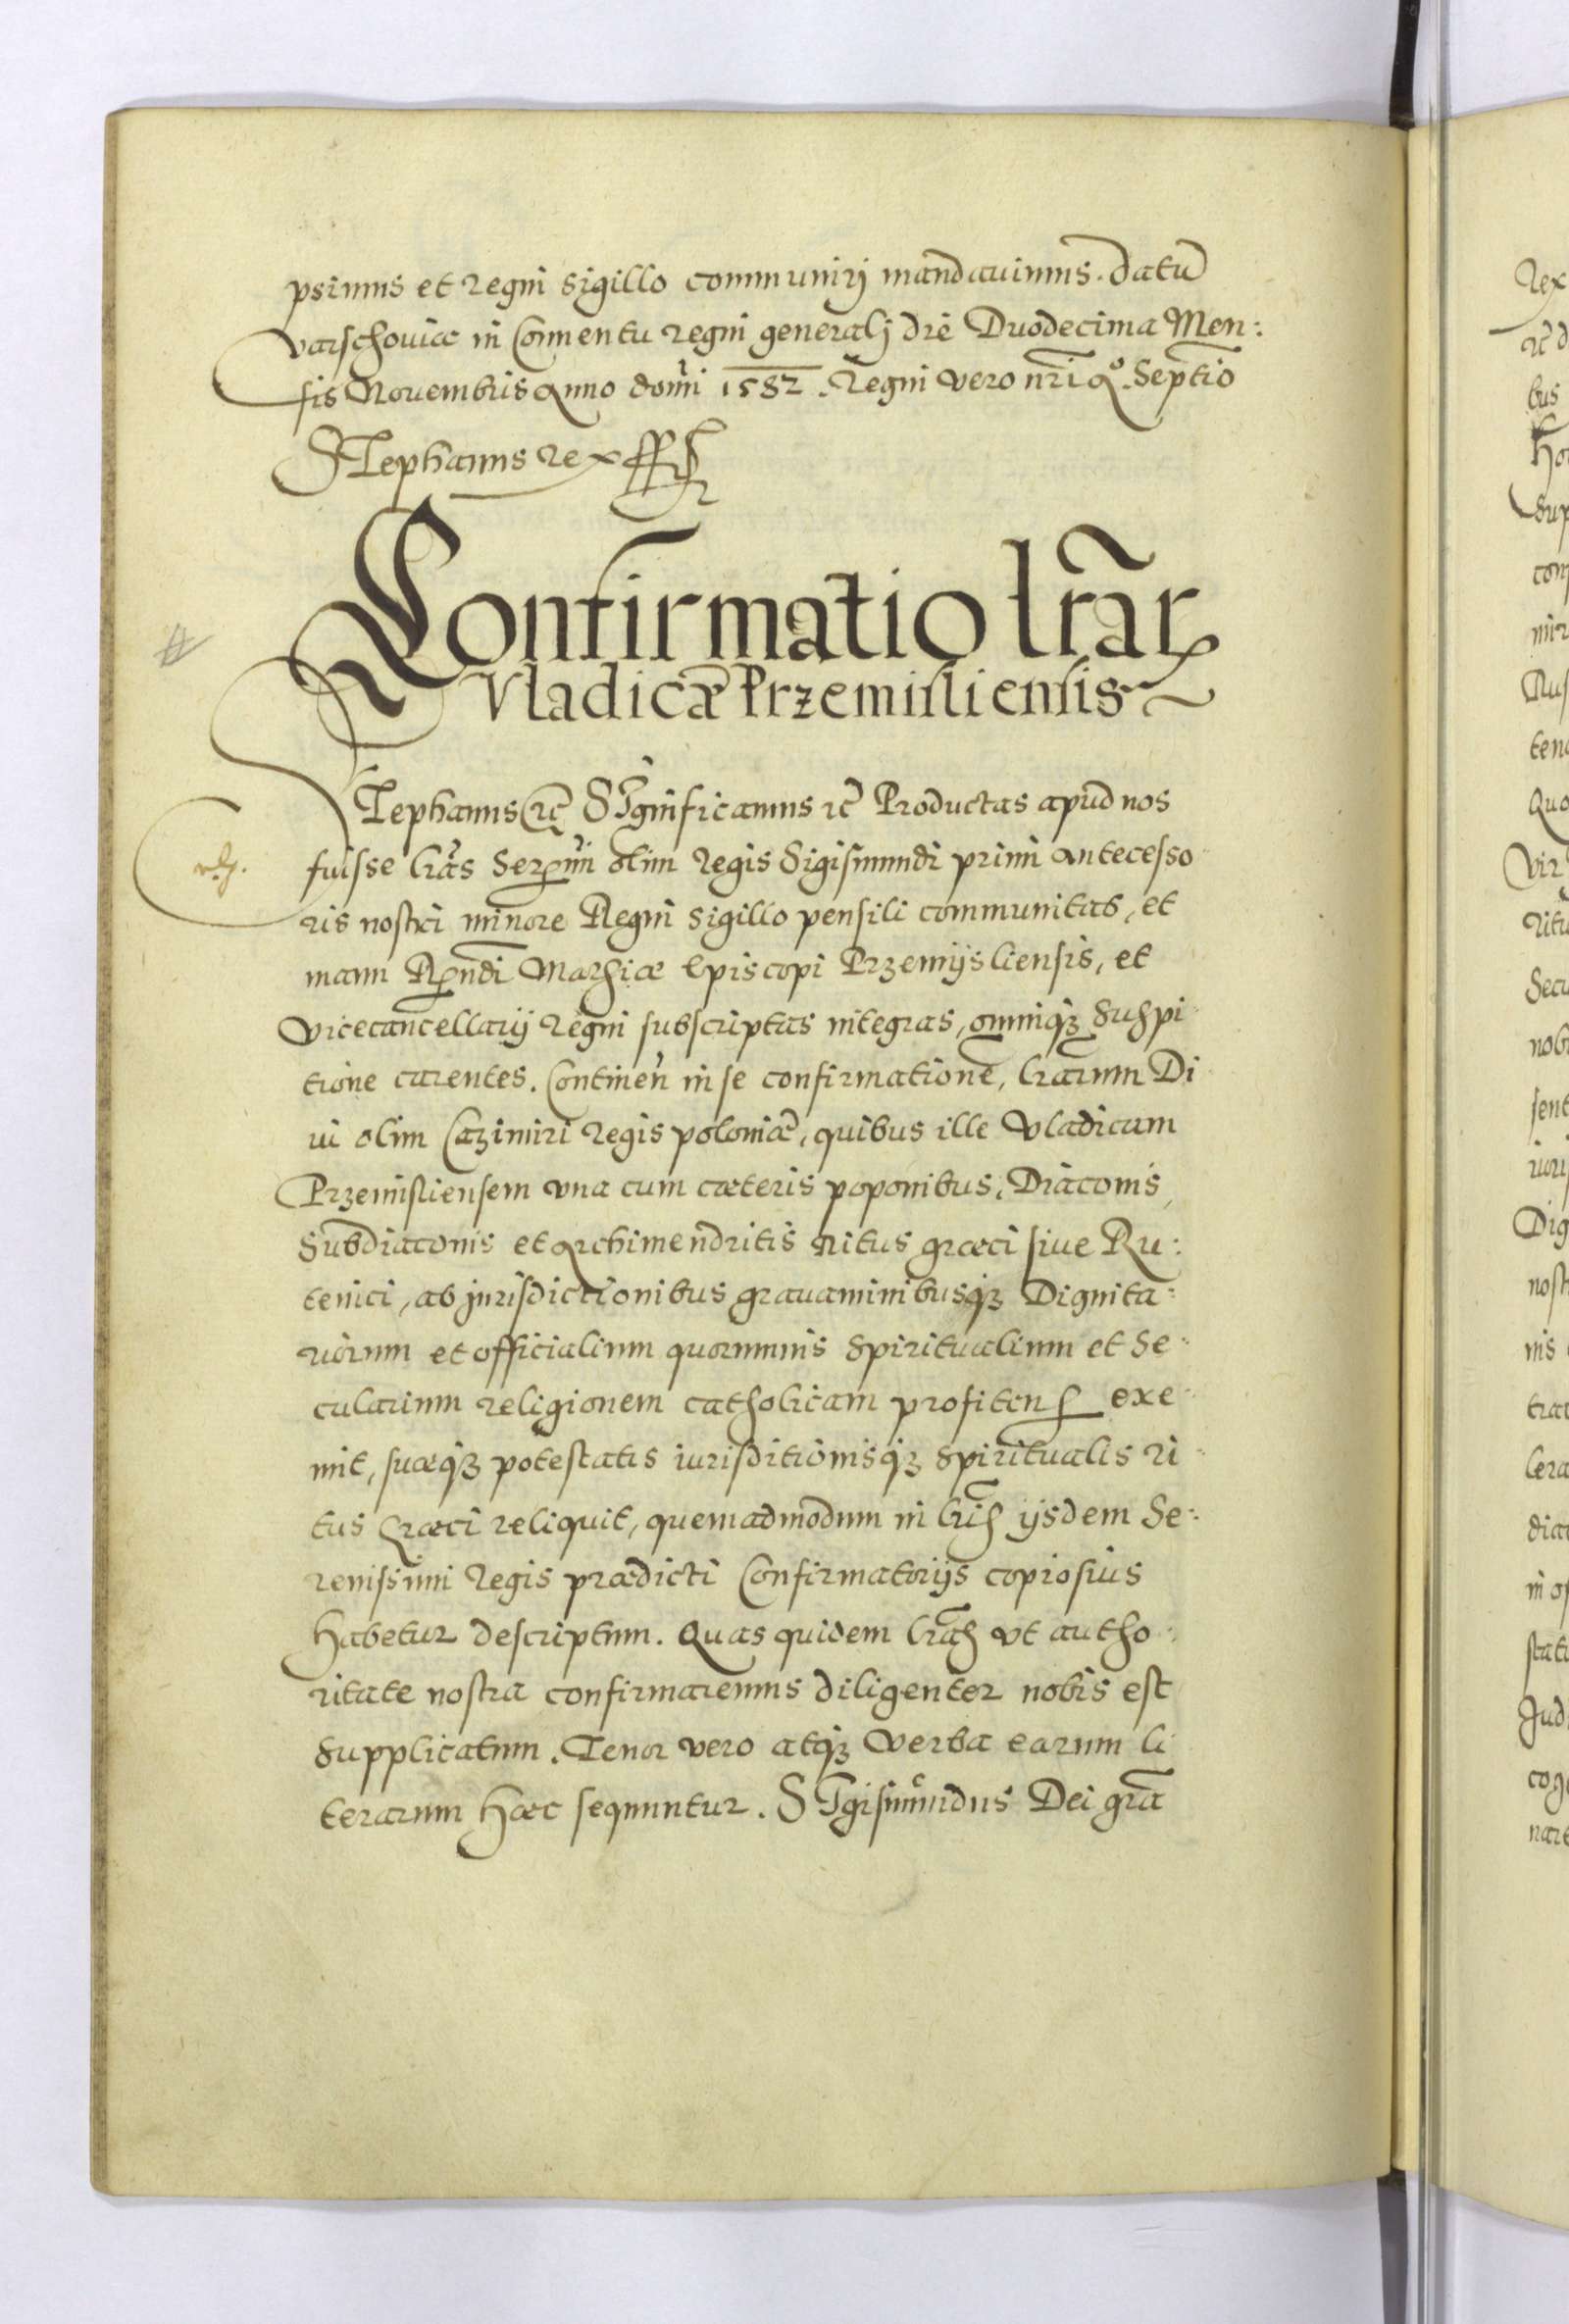 psimus et regni sigillo communirj mandauimus. datū
varschouiæ in Conuentu regni generalj die Duodecima Men:
sis Nouembris Anno domi 1582. Regni vero nri Aº. Septio
Stephanus rex
Confirmatio lrar
Vladicæ Przemisliensis
Stephanus etc Significamus etc Productas apud nos
fuisse lras Serenmi olim Regis Sigismundi primi antecesso
ris nostri minore Regni sigillo pensili communitas, et
manu Rendi Mathiæ Episcopi Przemysliensis, et
vicecancellarij Regni subscriptas integras, omniq3 Suspi
tione carentes. Continen in se confirmationē, lrarum Di
ui olim Cazimiri Regis poloniæ, quibus ille Vladicam
Przemisliensem vna cum cæteris poponibus, Diaconis,
Subdiaconis et Archimendritis ritus græci siue Ru:
tenici, ab jurisdictionibus grauaminibusq3 Dignita:
riorum et officialium quorumuis Spiritualium et Se:
cularium religionem catholicam profiten exe:
mit, suæq3 potestatis iurisditionisq3 spiritualis ri
tus Græci reliquit, quemadmodum in lris ijsdem Se:
renissimi Regis prædicti Confirmatorijs copiosius
habetur descriptum. Quas quidem lras vt autho:
ritate nostra confirmaremus diligenter nobis est
Supplicatum. Tenor vero atq3 verba earum li
terarum hæc sequuntur. Sigismundus Dei gra